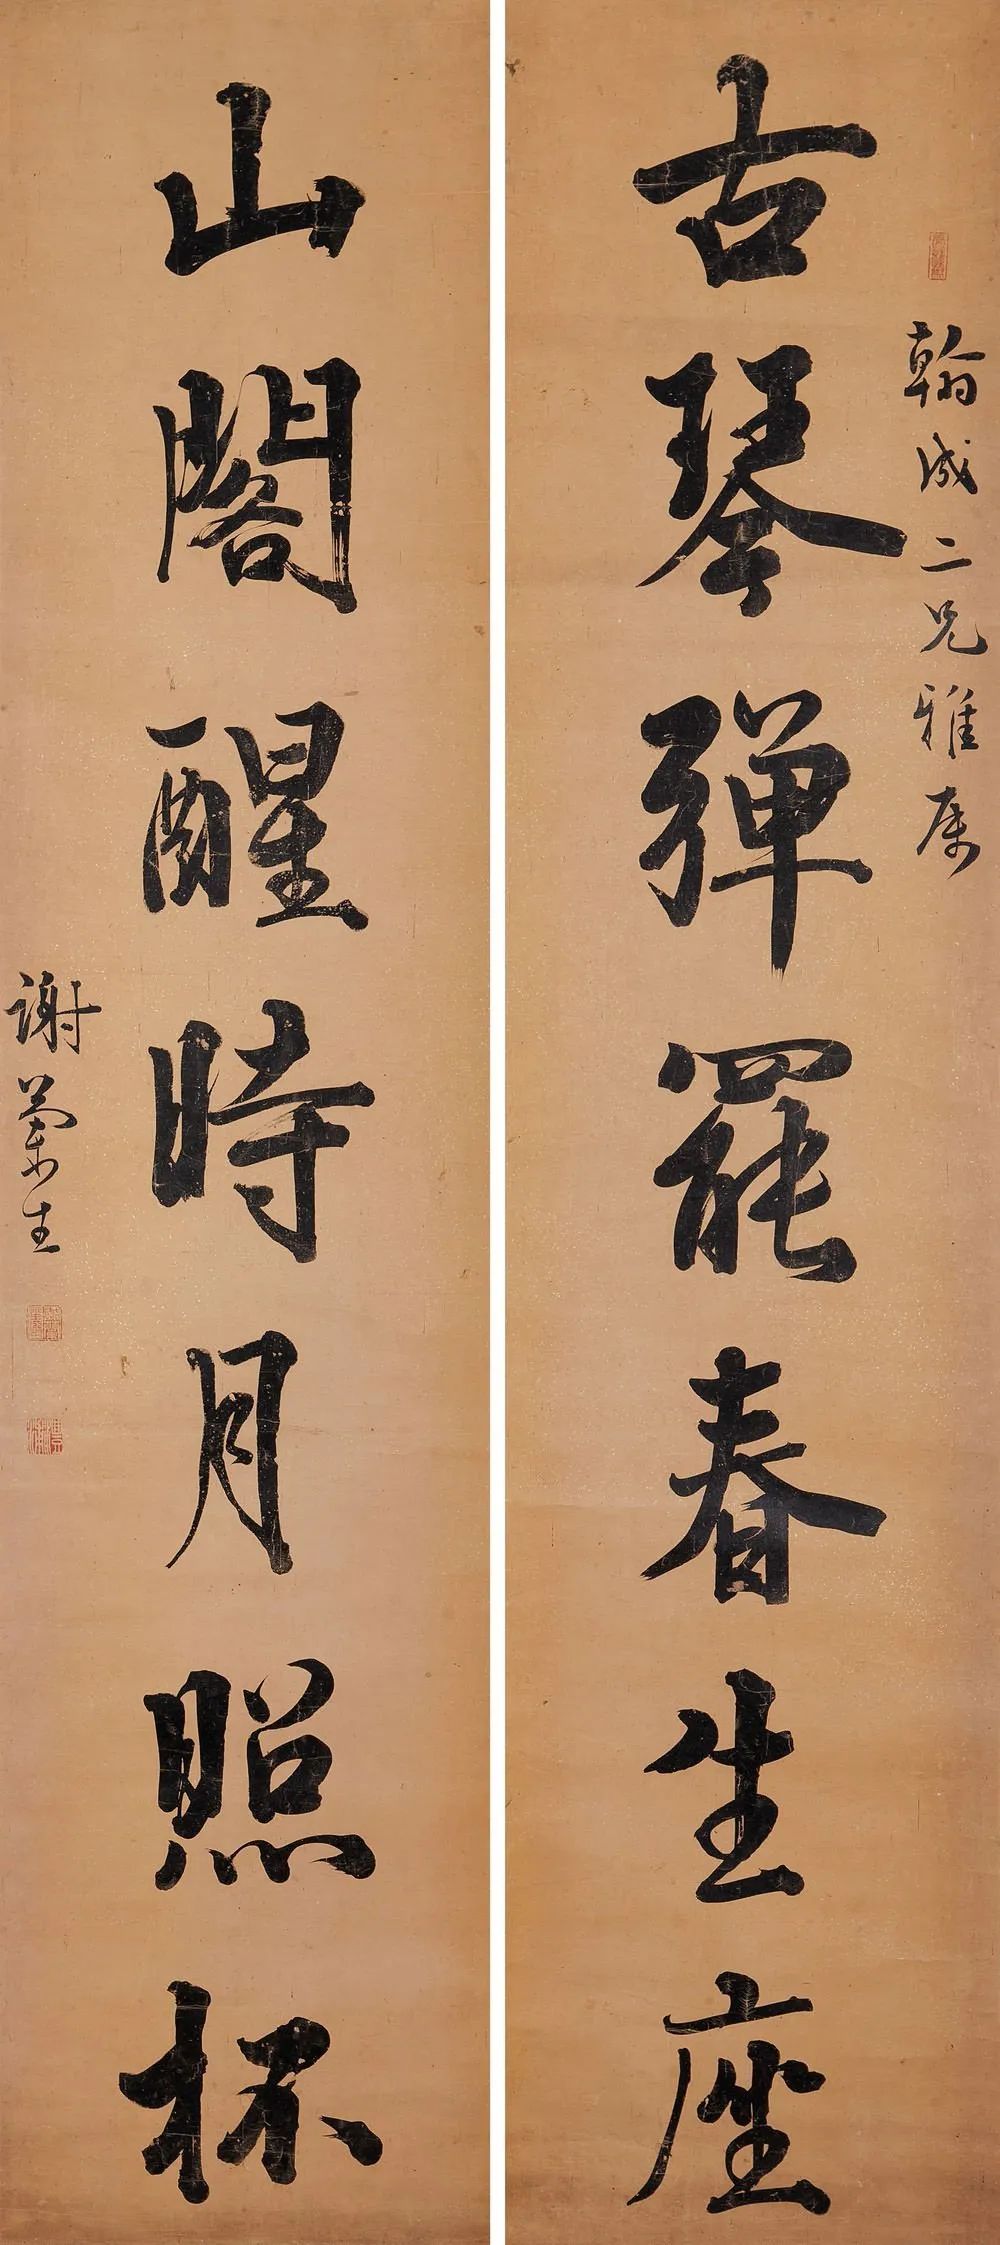 翰成二兄雅属
古琴彈罷春生座
山閣醒時月照杯
謝蘭生